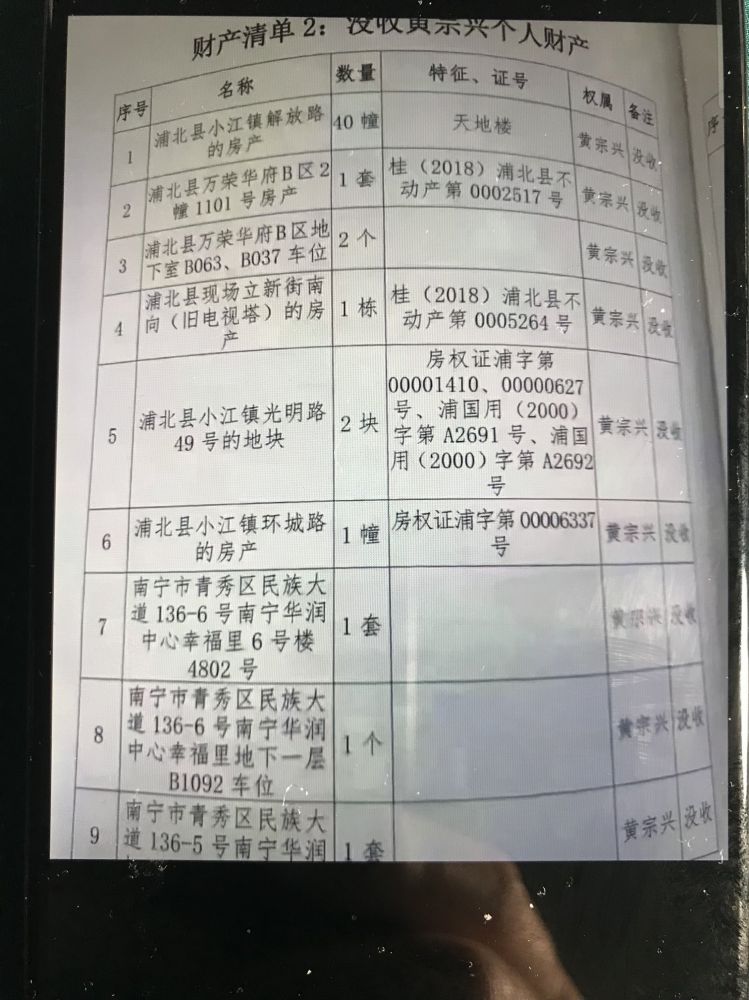 财产清单 2：没收黄宗兴个人财产
序号 名称 数量 特征、证号 权属 备注
1 浦北县小江镇解放路的房产 40 幢 天地楼 黄宗兴 没收
2 浦北县万荣华府B区2幢 1101 号房产 1 套 桂（2018）浦北县不动产第 0002517 号 黄宗兴 没收
3 浦北县万荣华府B区地下室B063、B037 车位 2 个 黄宗兴 没收
4 浦北县现场立新街南向（旧电视塔）的房产 1 栋 桂（2018）浦北县不动产第 0005264 号 黄宗兴 没收
5 浦北县小江镇光明路 49 号的地块 2 块 房权证浦字第 00001410、00000627 号、浦国用（2000）字第 A2691 号、浦国用（2000）字第 A2692 号 黄宗兴 没收
6 浦北县小江镇环城路的房产 1 幢 房权证浦字第 00006337 号 黄宗兴 没收
7 南宁市青秀区民族大道 136-6 号南宁华润中心幸福里 6 号楼 4802 号 1 套 黄宗兴 没收
8 南宁市青秀区民族大道 136-6 号南宁华润中心幸福里地下一层 B1092 车位 1 个 黄宗兴 没收
9 南宁市青秀区民族大道 136-5 号南宁华润 1 套 黄宗兴 没收
序